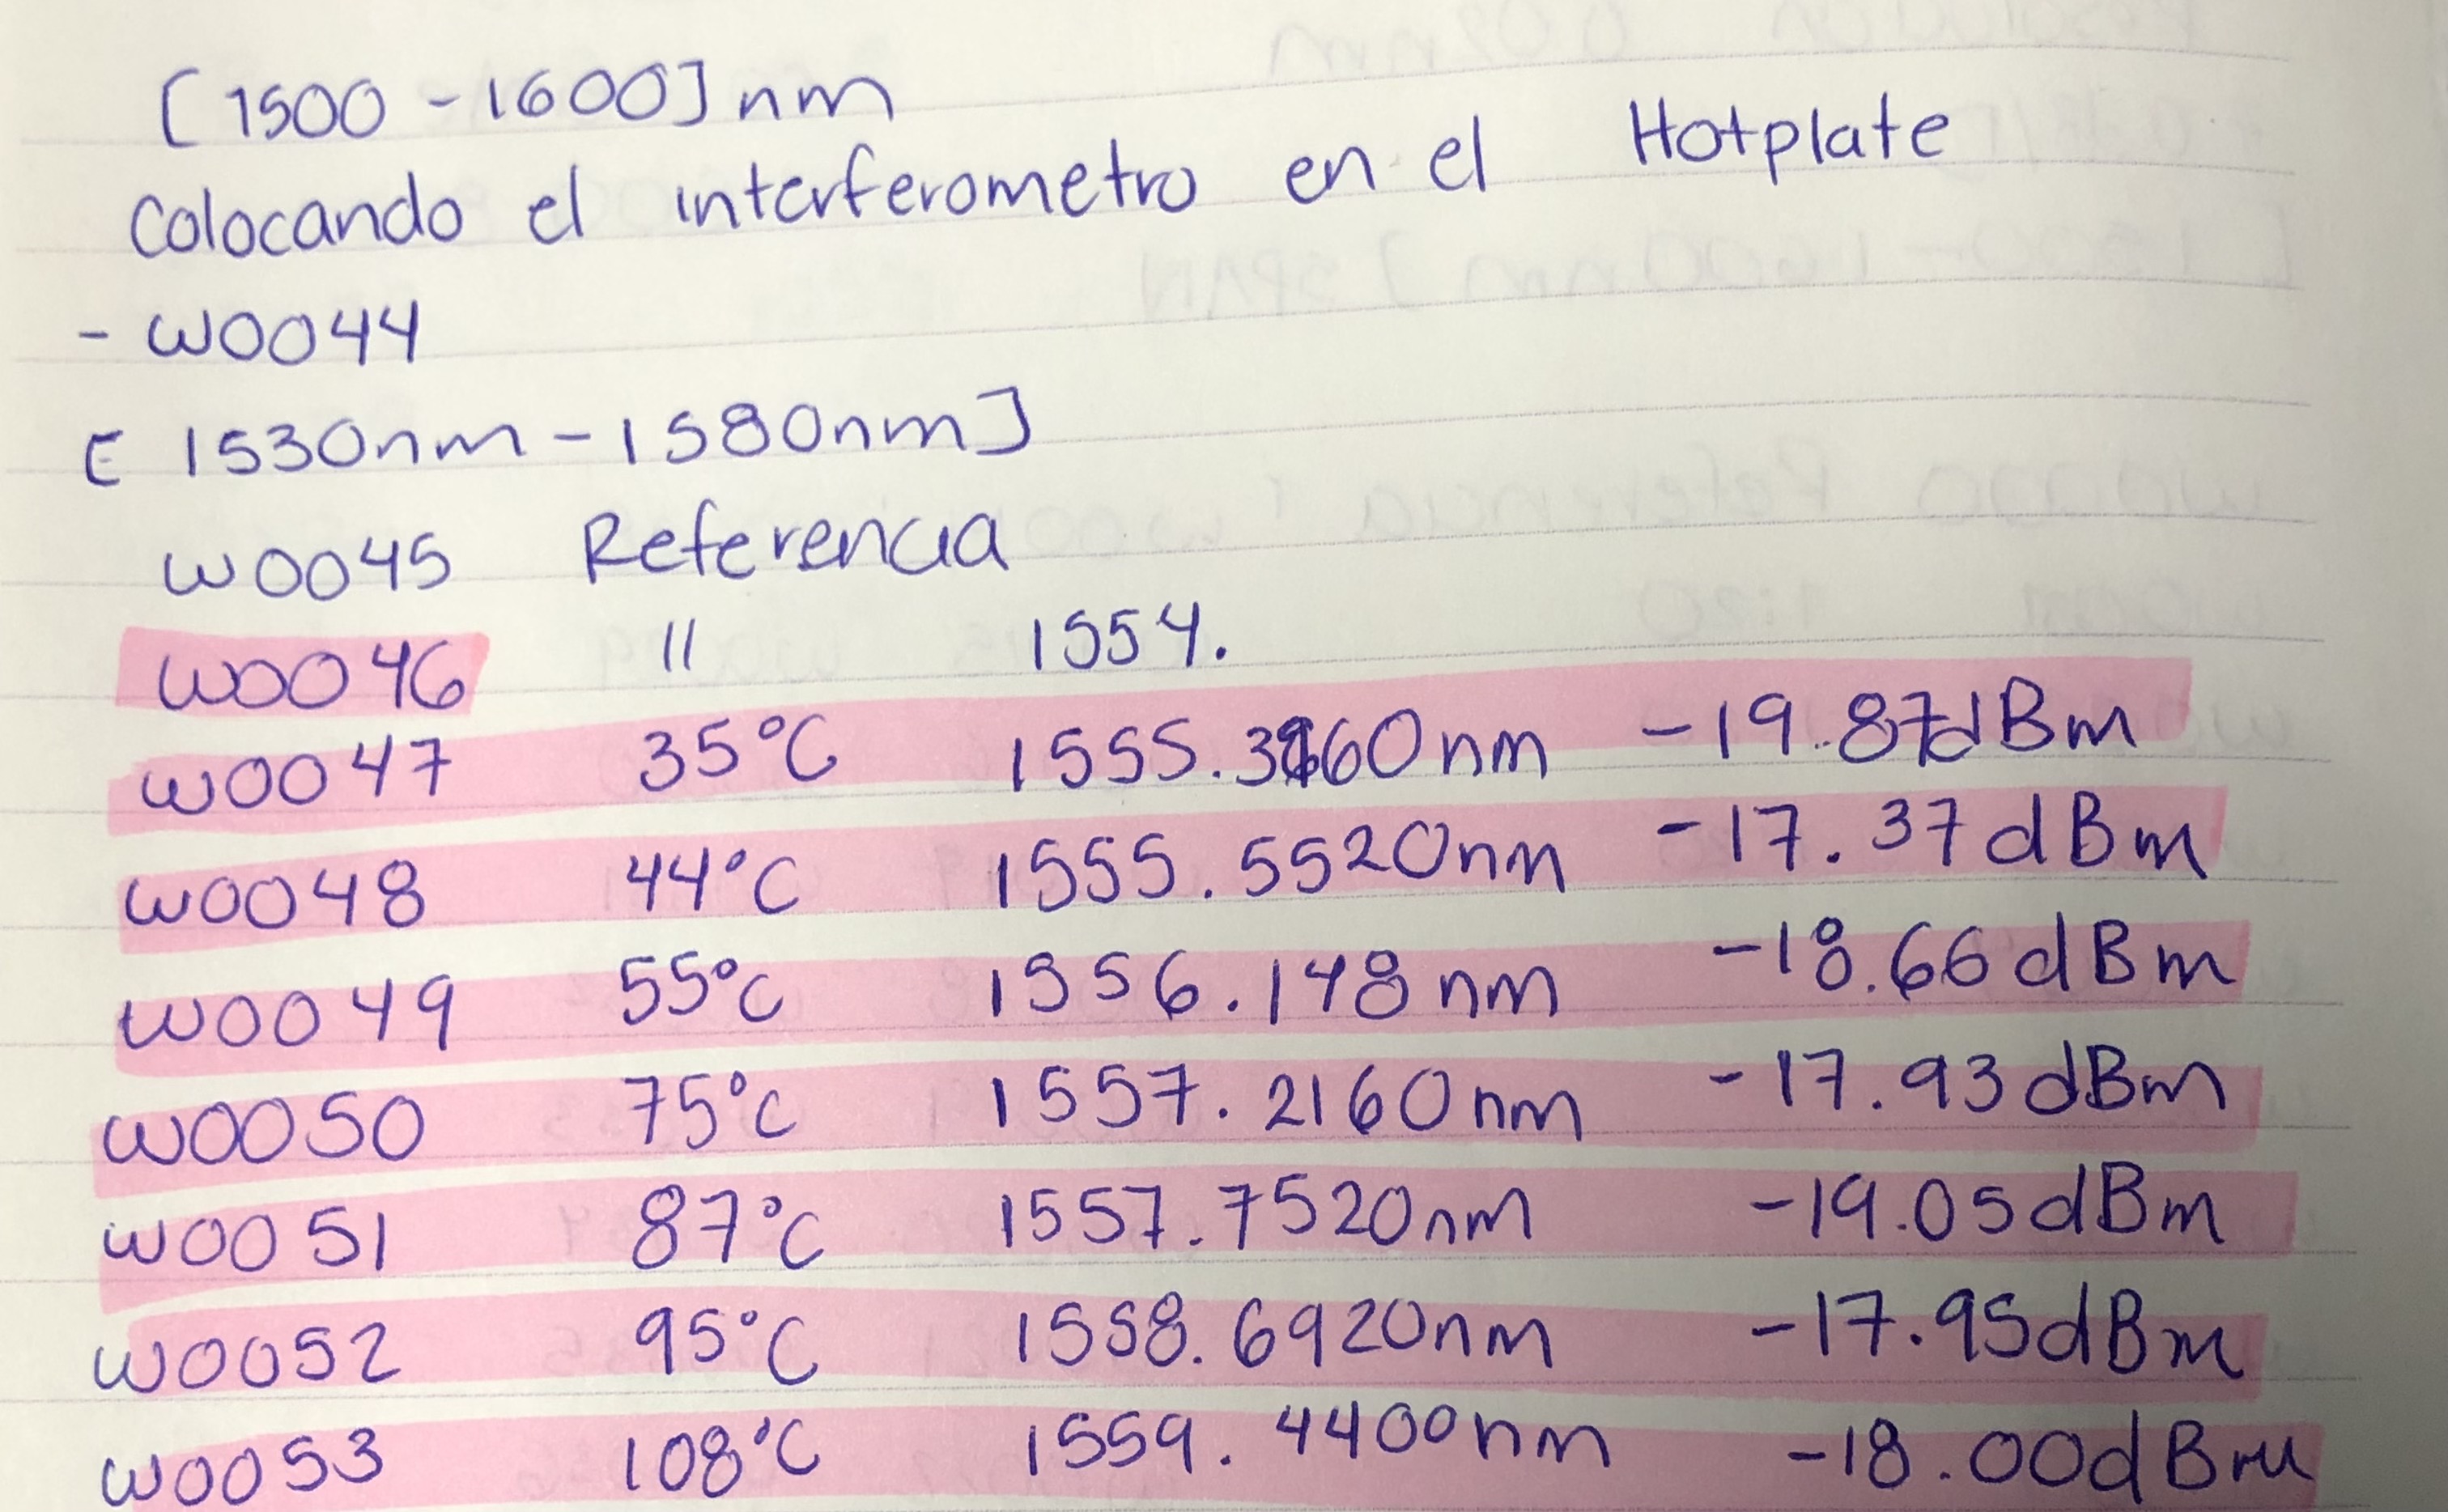 [1500 - 1600] nm
Colocando el interferometro en el Hotplate
- W0044
[ 1530nm - 1580nm]
W0045 Referencia
W0046 " 1554.
W0047 35°C nm -19.87dBm
W0048 44°C 1555.5520nm -17.37dBm
W0049 55°C 1556.148nm -18.66dBm
W0050 75°C 1557.2160nm -17.93dBm
W0051 87°C 1557.7520nm -19.05dBm
W0052 95°C 1558.6920nm -17.95dBm
W0053 108°C 1559.4400nm -18.00dBm